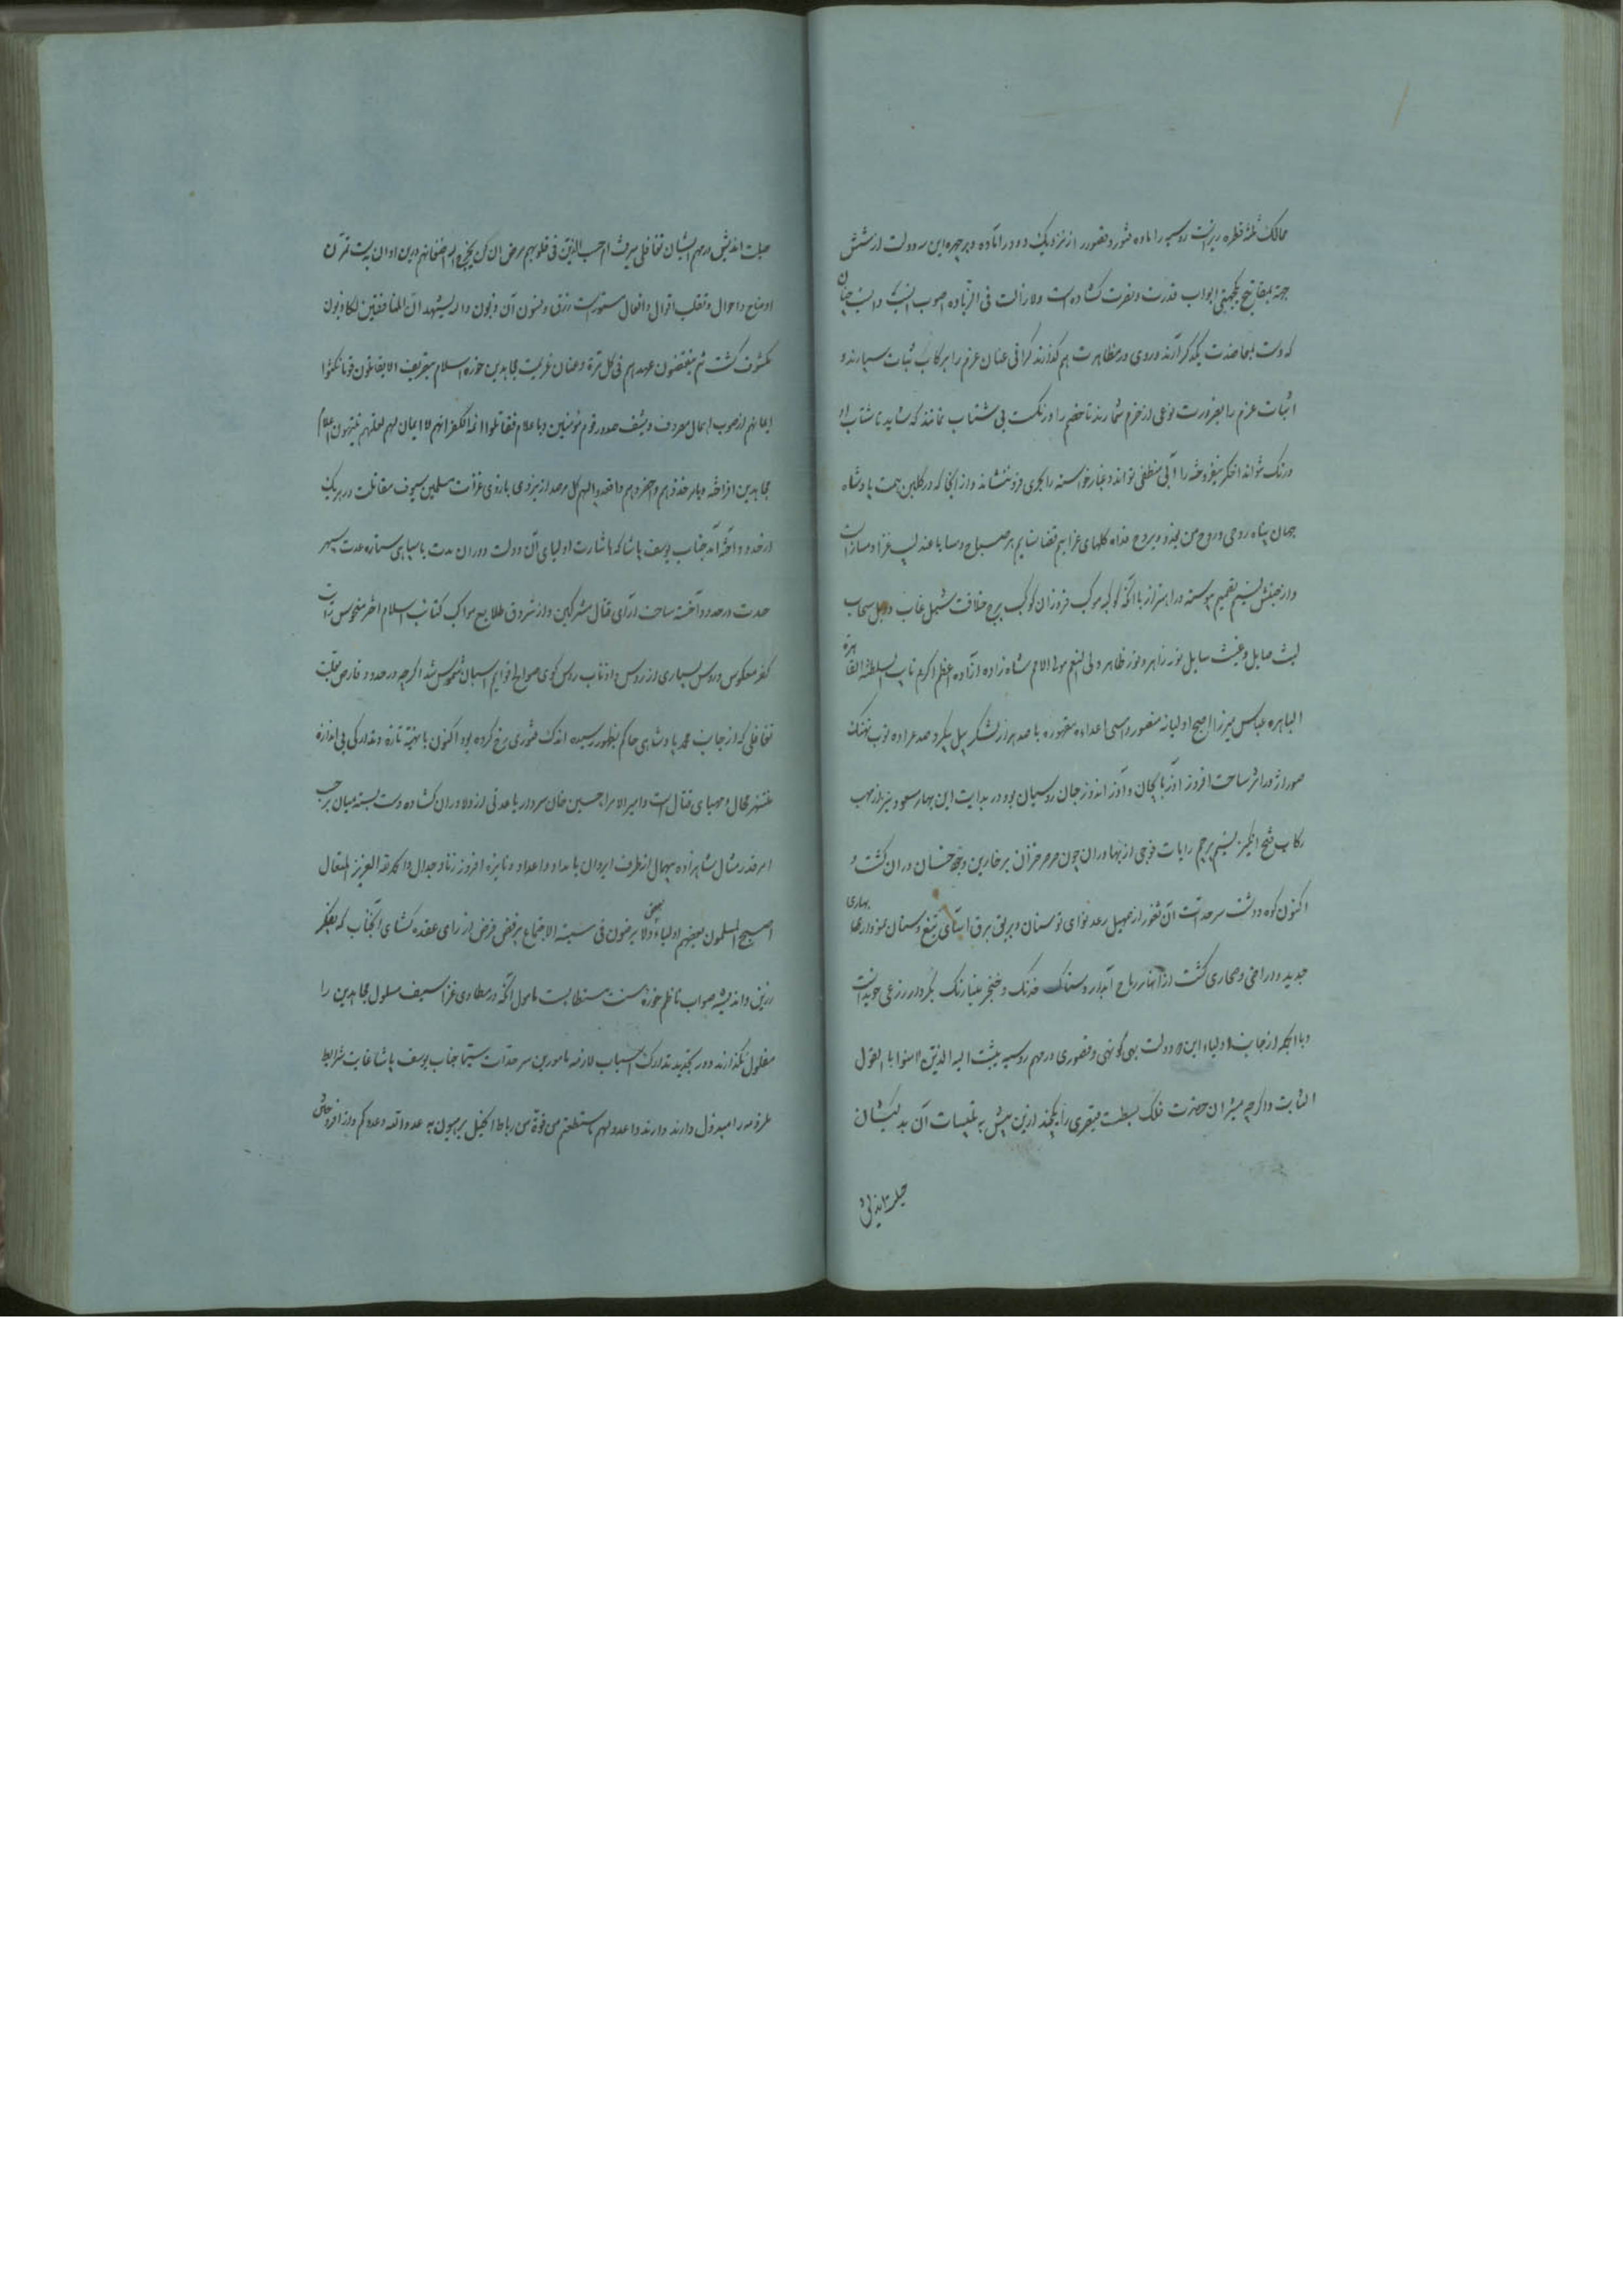 ممالک ثلثه قطره ریز است روسیه را ماده فتور و قصور از نزدیک و دور آماده و بر چهره این سه دولت از شش
جهة بمفاتیح یکجهتی ابواب قدرت و نصرت گشاده است ولا زالت فی الزیاده صوب انسب و الیق چنان
که دست بمعاضدت یکدیگر آرند و روی در مظاهرت هم گذارند گرانی عنان عزم را برکاب ثبات سپارند و
اثبات عزم را بضرورت نوعی از حزم شمارند تا خصم را درنگ بی شتاب نماند که شاید تا شتاب او
درنگ تواند اخگر نیفروخته را آبی منطفی تواند و غبار خواسته را بحری فرو ننشاند و از آنجا که در گلبن همت پادشاه
جهان پناه روحی و روح من فداه گلهای عزایم قضا نمایم هر صباح و مسا با عندلیب غزا دمساز است
و از جنبش نسیم تصمیم پیوسته در اهتزاز با آنکه کوکبه موکب فروزان کوکب برج خلافت شبل غاب و وبل سحاب
لیث صایل و غیث سایل نور زاهر و نور ظاهر ولی النعم مولی الامم شاه زاده آزاده اعظم اکرم نایب السلطنة القاهرة
الباهره عباس میرزا اصبح اولیائه منصوره و امسی اعداءه مقهوره با صد هزار لشکر پیل پیکر و صد عراده توپ نهنگ
صور اژدر اثر ساحت افروز آذربایجان و آذر اندوز جان روسیان بود در بدایت این بهار مسعود نیز از مهب
رکاب فتح انگیز نسیم پرچم رایات فوجی از بهادران چون صرصر خزان بر خاربن وجود خسان وزان گشت و
اکنون کوه و دشت سرحدات آن ثغور از صهیل رعد نوای توسنان و بریق برق آسای تیغ و سنان نمودار بهاری
جدید و در اراضی و صحاری کشت از انهار رماح آبدار و سنابک خدنگ و خنجر مینارنگ بکردار زرعی خویدانست
و با آنکه از جانب اولیاء این دولت بهی کوتهی و قصوری در مهم روسیه یثبت الله الذین آمنوا بالقول
الثابت و اگرچه مبشران حضرت فلک بسطت قیصری را یکچند ازین پیش به تلبیسات آن بدکیشان
حیلت اندیش
حیلت اندیش در مهم ایشان تغافلی میرفت ام حسب الذین فی قلوبهم مرض ان لن یخرج الله اضغانهم درین اوان بدیت تمرن
اوضاع و احوال و تقلب اقوال و افعال مستورات زرق و فنون آن قوم دون والله یشهد ان المنافقین لکاذبون
مکشوف گشت ثم ینقضون عهدهم فی کل مرة و عنان عزیمت مجاهدین حوزه اسلام بتحریض الا تقاتلون قوما نکثوا
ایمانهم از صوب اهمال مصروف و یشف صدور قوم مؤمنین و باعلام فقاتلوا ائمة الکفر انهم لا ایمان لهم لعلهم ینتهون اعلام
مجاهدین افراخته و بار خذوهم واحصروهم واقعدوا لهم کل مرصد از نیروی بازوی غزات مسلمین سیوف مقاتلت در هر یک
از حدود آخته آمد جناب یوسف پاشا که باشارت اولیای آن دولت دوران مدت با سپاهی ستاره عدت سپهر
حدت در حدود آخسقه ساحت آرای قتال مشرکین و از شروق طلایع مواکب کتائب اسلام اختر منحوس رایات
کفر معکوس و روس بسیاری از روس و اذناب روس گوی صولجان قوایم اسبان شموس شد اگرچه در حدود قارص بعلت
تغافلی که از جانب محمد پاشای حاکم بظهور رسیده اندک فتوری رخ کرده بود اکنون با تهیه تازه و تدارکی بی اندازه
منتهز مجال و مهیای قتال است و امیر الامرا حسین خان سردار با عدتی از دلاوران گشاده دست بسته میان بر حسب
امر قدر مثال شاهزاده بیهمال از طرف ایروان با مداد و اعداد و نایره افروز زناد جدال والحکم لله العزیز المتعال
اصبح المسلمون بعضهم اولیاء بعض ولا یرضون فی سنة الاجتماع برفض فرض از رای عقده گشای آنجناب که بفکر
رزین و اندیشه صواب ناظم حوزه سنت مستطابست مامول آنکه در مطاوی غزا سیف مسلول مجاهدین را
مغلول نگذارند و در تجدید تدارک اسباب لازمه مامورین سرحدات سیما جناب یوسف پاشا غایت شرایط
عزومه را مبذول دارند واعدوا لهم ما استطعتم من قوة ومن رباط الخیل ترهبون به عدو الله وعدوکم و از افروختن